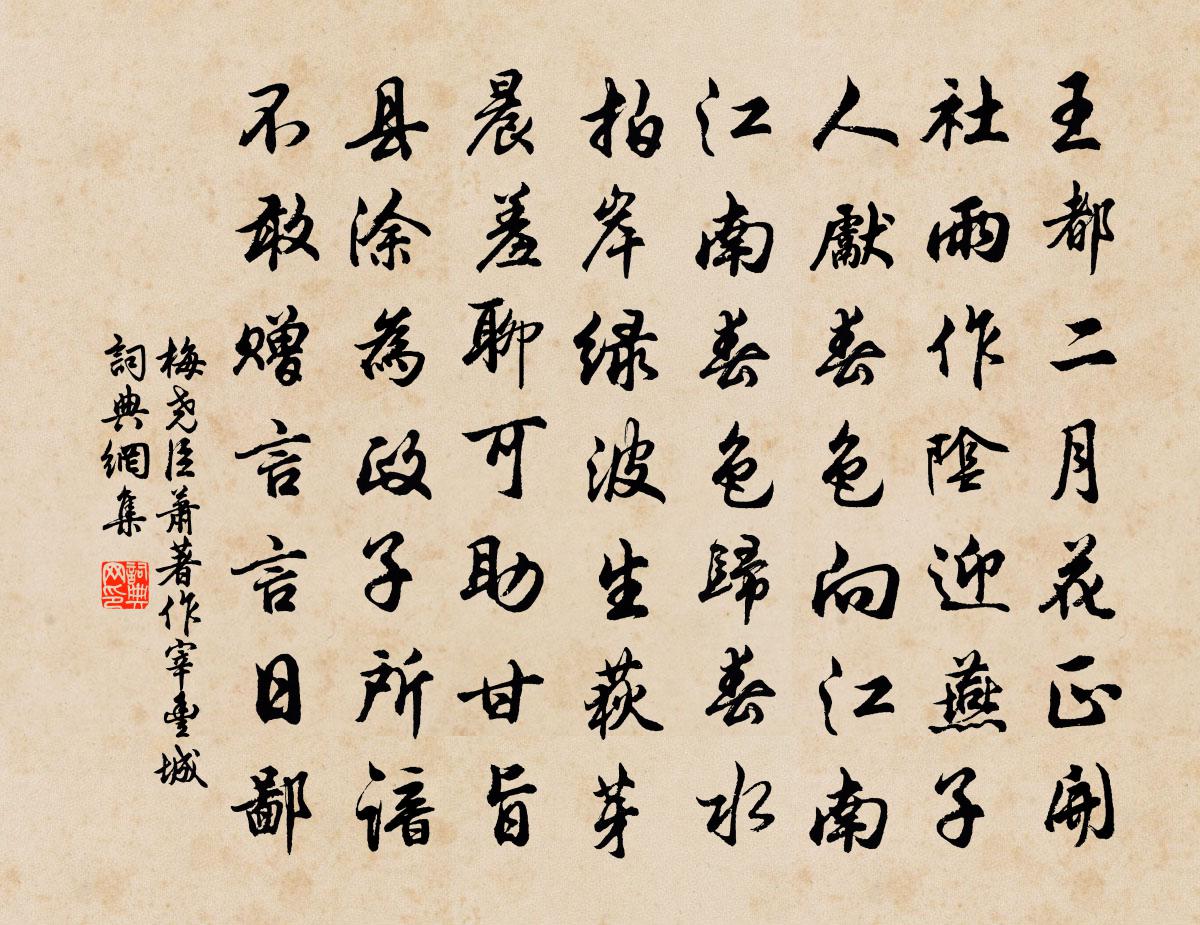 王都二月花正開
社雨作陰迎燕子
人獻春色向江南
江南春色歸春水
拍岸绿波生荻芽
晨羞聊可助甘旨
县除為政子所谙
不敢赠言言日鄙
梅尧臣蕭著作宰豊城
詞典網集
詞典网印